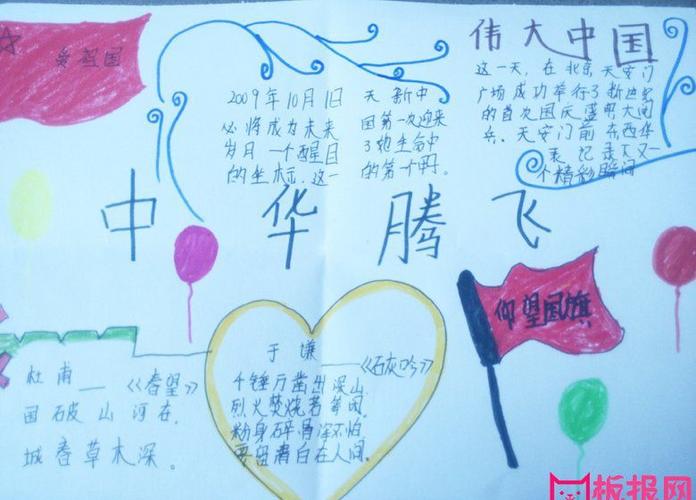 爱祖国
伟大中国
2009年10月1日
必将成为未来
岁月一个醒目
的坐标.这一
天新中
国第一次迎来
了她生命中
的第一个
这一天,在北京天安门
广场成功举行了新世纪
的首次国庆盛明大阅
兵。天安门前东西华
表记录下又一
个精彩瞬间
中华腾飞
仰望国旗
杜甫——《春望》
国破山河在,
城春草木深。
于谦——《石灰吟》
千锤万凿出深山,
烈火焚烧若等闲.
粉身碎骨浑不怕
要留清白在人间.
板报网